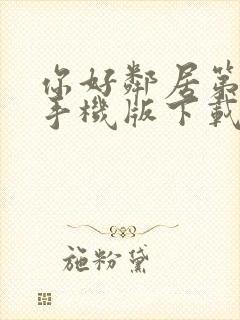 你好鄰居第
手機版下載
施粉黛